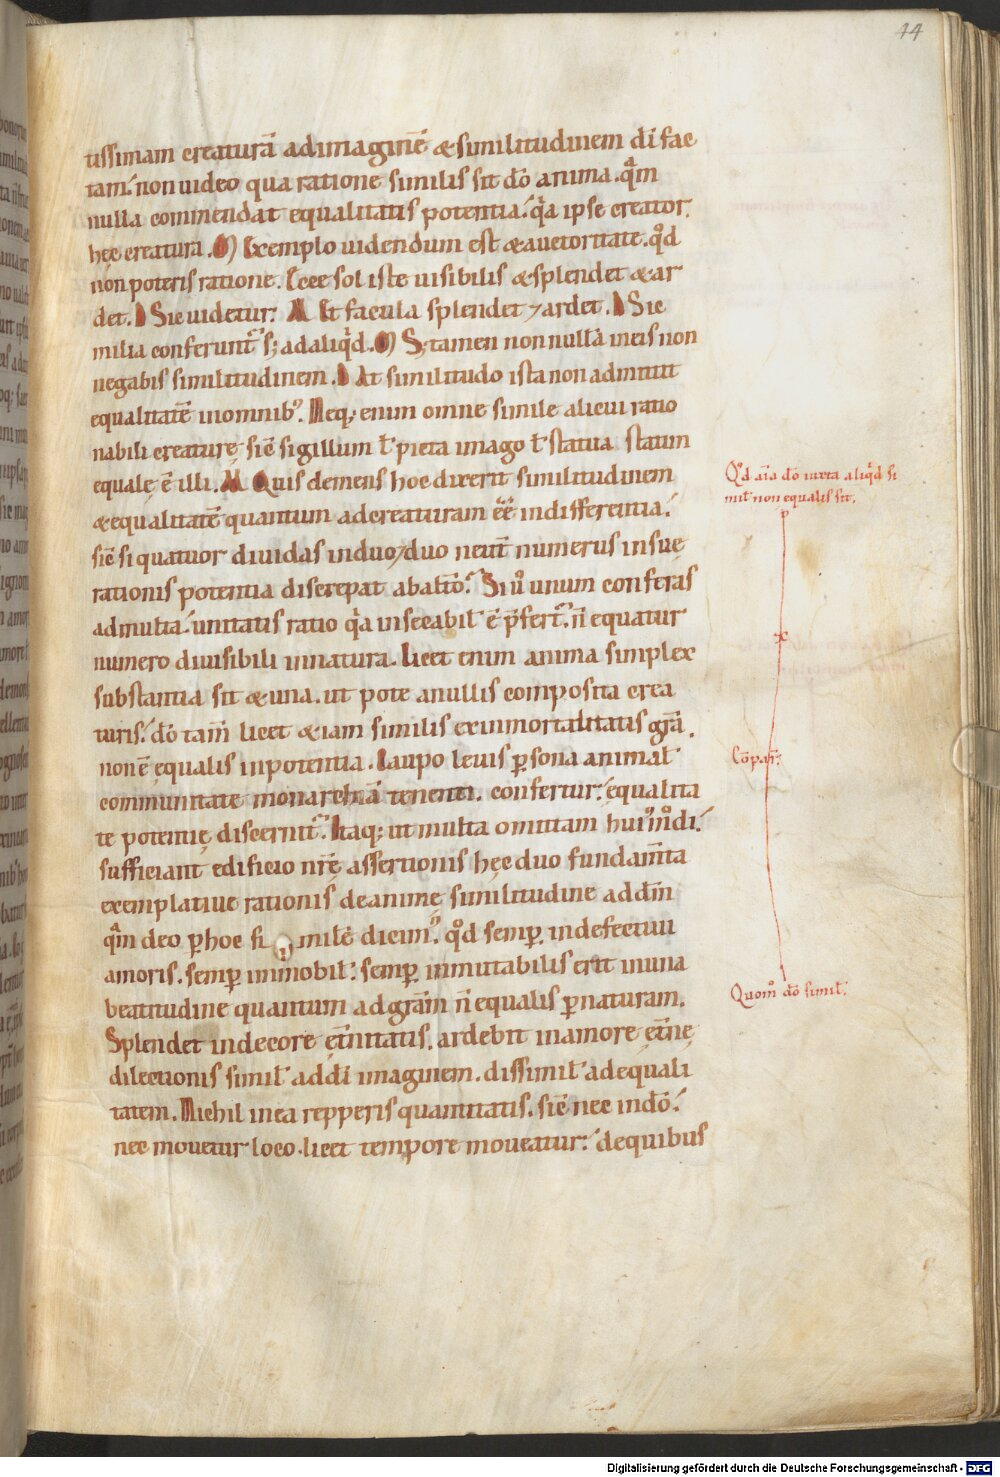 44
tissimam creaturā ad imaginē & similitudinem dī fac
tam. non uideo qua ratione similis sit dō anima. qm̄
nulla commendat equalitatis potentia. qa ipse creator.
hęc creatura. Exemplo uidendum est & auctoritate. qd
non poteris ratione. Ecce sol iste uisibilis & splendet & ar
det. D Sic uidetur. M Et facula splendet ⁊ ardet. D Sic
milia conferunt᷑ s; ad aliqd. M S; tamen non nullā in eis non
negabis similitudinem. D At similitudo ista non admittit
equalitatē in omnib;. Neq; enim omne simile alicui ratio
nabili creaturę, sic̄ sigillum ł picta imago ł statua statim
equale ē illi. M Quis demens hoc dixerit similitudinem
& equalitatē quantum ad creaturam eē indifferentia.
sic̄ si quatuor diuidas in duo ⁊ duo neut̄ numerus in suę
rationis potentia discrepat ab alt̄o. Si ů unum conferas
ad multa. unitatis ratio qa insecabił ē p̄fert᷑. n̄ equatur
numero diuisibili in natura. Licet enim anima simplex
substantia sit & una. ut pote a nullis composita crea
turis. dō tam̄ licet & iam similis ex inmortalitatis gr̄a.
non ē equalis in potentia. Iaupo leuis ꝑsona animał
communitate monarchiā tenenti. confertur. equalita
te potentię discernit᷑. Itaq; ut multa omittam hui᷒modi.
sufficiant edificio nr̄ę assertionis hęc duo fundam̄ta
exemplatiue rationis de animę similitudine ad dm̄
qm̄ deo ꝑ hoc si milē dicim᷒. qd semꝑ indefectui
amoris. semꝑ inmobił. semꝑ inmutabilis erit in una
beatitudine quantum ad gr̄am n̄ equalis ꝑ naturam.
Splendet in decore et̄nitatis. ardebit in amore et̄nę
dilectionis simił ad dī imaginem. dissimił ad equali
tatem. Nichil in ea repperis quantitatis. sic̄ nec in dō.
nec mouetur loco. licet tempore moueatur. de quibus
Qd aīa dō iuxta aliqd si
mił non equalis sit.
Cōpar̄.
Quom̊ dō simił.
Digitalisierung gefördert durch die Deutsche Forschungsgemeinschaft - DFG